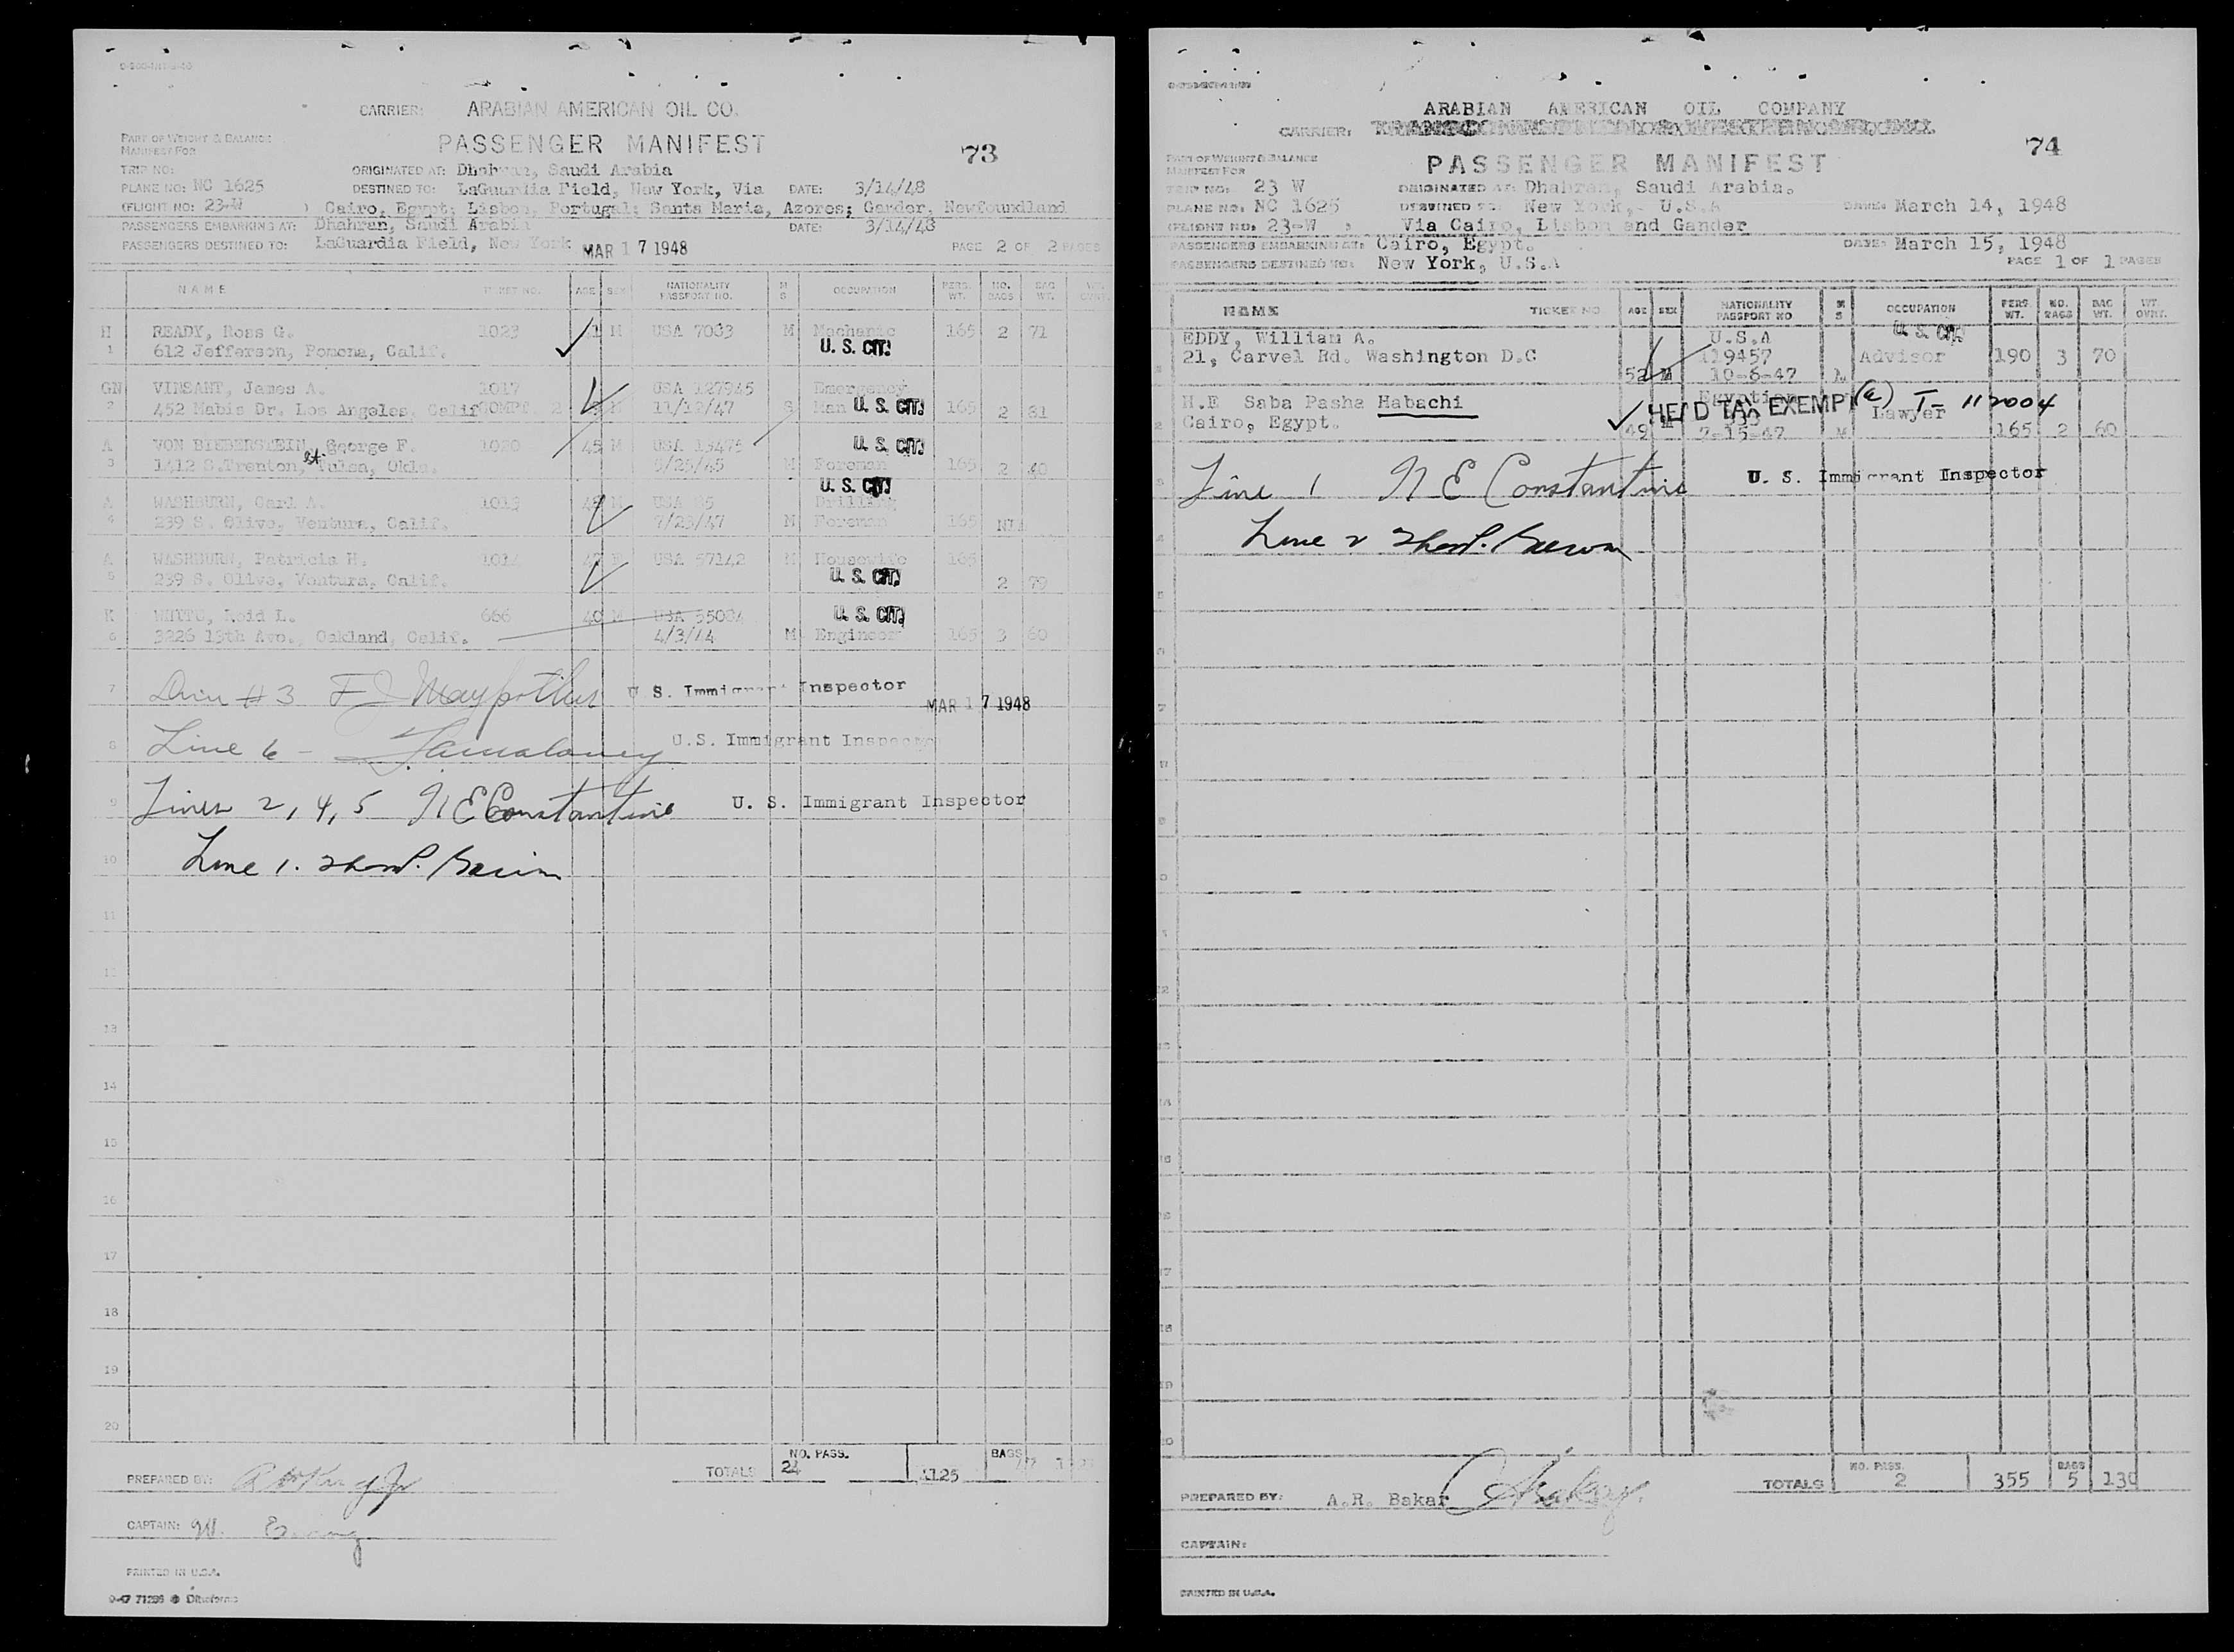 CARRIER: ARABIAN AMERICAN OIL CO.
PART OF WEIGHT & BALANCE
MANIFEST FOR
PASSENGER MANIFEST
73
TRIP NO:
ORIGINATED AT: Dhahran, Saudi Arabia
PLANE NO: NC 1625
DESTINED TO: LaGuardia Field, New York, Via DATE: 3/14/48
(FLIGHT NO: 23-W ) Cairo, Egypt; Lisbon, Portugal; Santa Maria, Azores; Gander, Newfoundland
PASSENGERS EMBARKING AT: Dhahran, Saudi Arabia DATE: 3/14/48
PASSENGERS DESTINED TO: LaGuardia Field, New York MAR 17 1948 PAGE 2 OF 2 PAGES
NAME TICKET NO. AGE SEX NATIONALITY PASSPORT NO. M S OCCUPATION PERS. WT. NO. BAGS BAG WT. WT. OVRT.
H READY, Ross G. 1023 M USA 7083 M Mechanic 165 2 71
1 612 Jefferson, Pomona, Calif. U. S. CIT.
GN VINSANT, James A. 1017 USA 127945 Emergency
2 452 Mabis Dr. Los Angeles, Calif COMPT. 2 M 11/12/47 S Man U. S. CIT. 165 2 81
A VON BIEBERSTEIN, George F. 1020 45 M USA 19475 U. S. CIT.
3 1412 S. Trenton, st. Tulsa, Okla. 5/25/45 M Foreman 165 2 40
U. S. CIT.
A WASHBURN, Carl A. 1013 48 M USA 95 Drilling
4 239 S. Olive, Ventura, Calif. 7/23/47 M Foreman 165 NIL
A WASHBURN, Patricia H. 1014 47 F USA 57142 M Housewife 165
5 239 S. Olive, Ventura, Calif. U. S. CIT. 2 79
K WHYTE, Reid L. 666 40 M USA 55084 U. S. CIT.
6 3226 13th Ave., Oakland, Calif. 4/3/44 M Engineer 165 3 60
7 Line #3 U S. Immigrant Inspector
MAR 17 1948
8 Line 6 - U.S. Immigrant Inspector
9 Lines 2, 4, 5 N E Constantine U. S. Immigrant Inspector
10 Line 1.
11
12
13
14
15
16
17
18
19
20
TOTALS NO. PASS. 24 1125 BAGS
PREPARED BY:
CAPTAIN:
PRINTED IN U.S.A.
ARABIAN AMERICAN OIL COMPANY
CARRIER:
74
PART OF WEIGHT & BALANCE
MANIFEST FOR
PASSENGER MANIFEST
TRIP NO: 23 W ORIGINATED AT: Dhahran, Saudi Arabia.
PLANE NO: NC 1625 DESTINED TO: New York,- U.S.A DATE: March 14, 1948
(FLIGHT NO: 23-W ) Via Cairo, Lisbon and Gander
PASSENGERS EMBARKING AT: Cairo, Egypt. DATE: March 15, 1948
PASSENGERS DESTINED TO: New York, U.S.A PAGE 1 OF 1 PAGES
NAME TICKET NO. AGE SEX NATIONALITY PASSPORT NO M S OCCUPATION PERS. WT. NO. BAGS BAG WT. WT. OVRT.
EDDY, William A. U.S.A U. S. CIT.
21, Carvel Rd. Washington D.C 119457 Advisor 190 3 70
52 M 10-6-47 M
H.E Saba Pasha Habachi Egyptian HEAD TAX EXEMPT (e) T- 112004
Cairo, Egypt. Lawyer
49 M 7-15-47 M 165 2 60
Line 1 N E Constantine U. S. Immigrant Inspector
Line 2
TOTALS NO. PASS. 2 355 BAGS 5 130
PREPARED BY: A.R. Bakar
CAPTAIN:
PRINTED IN U.S.A.